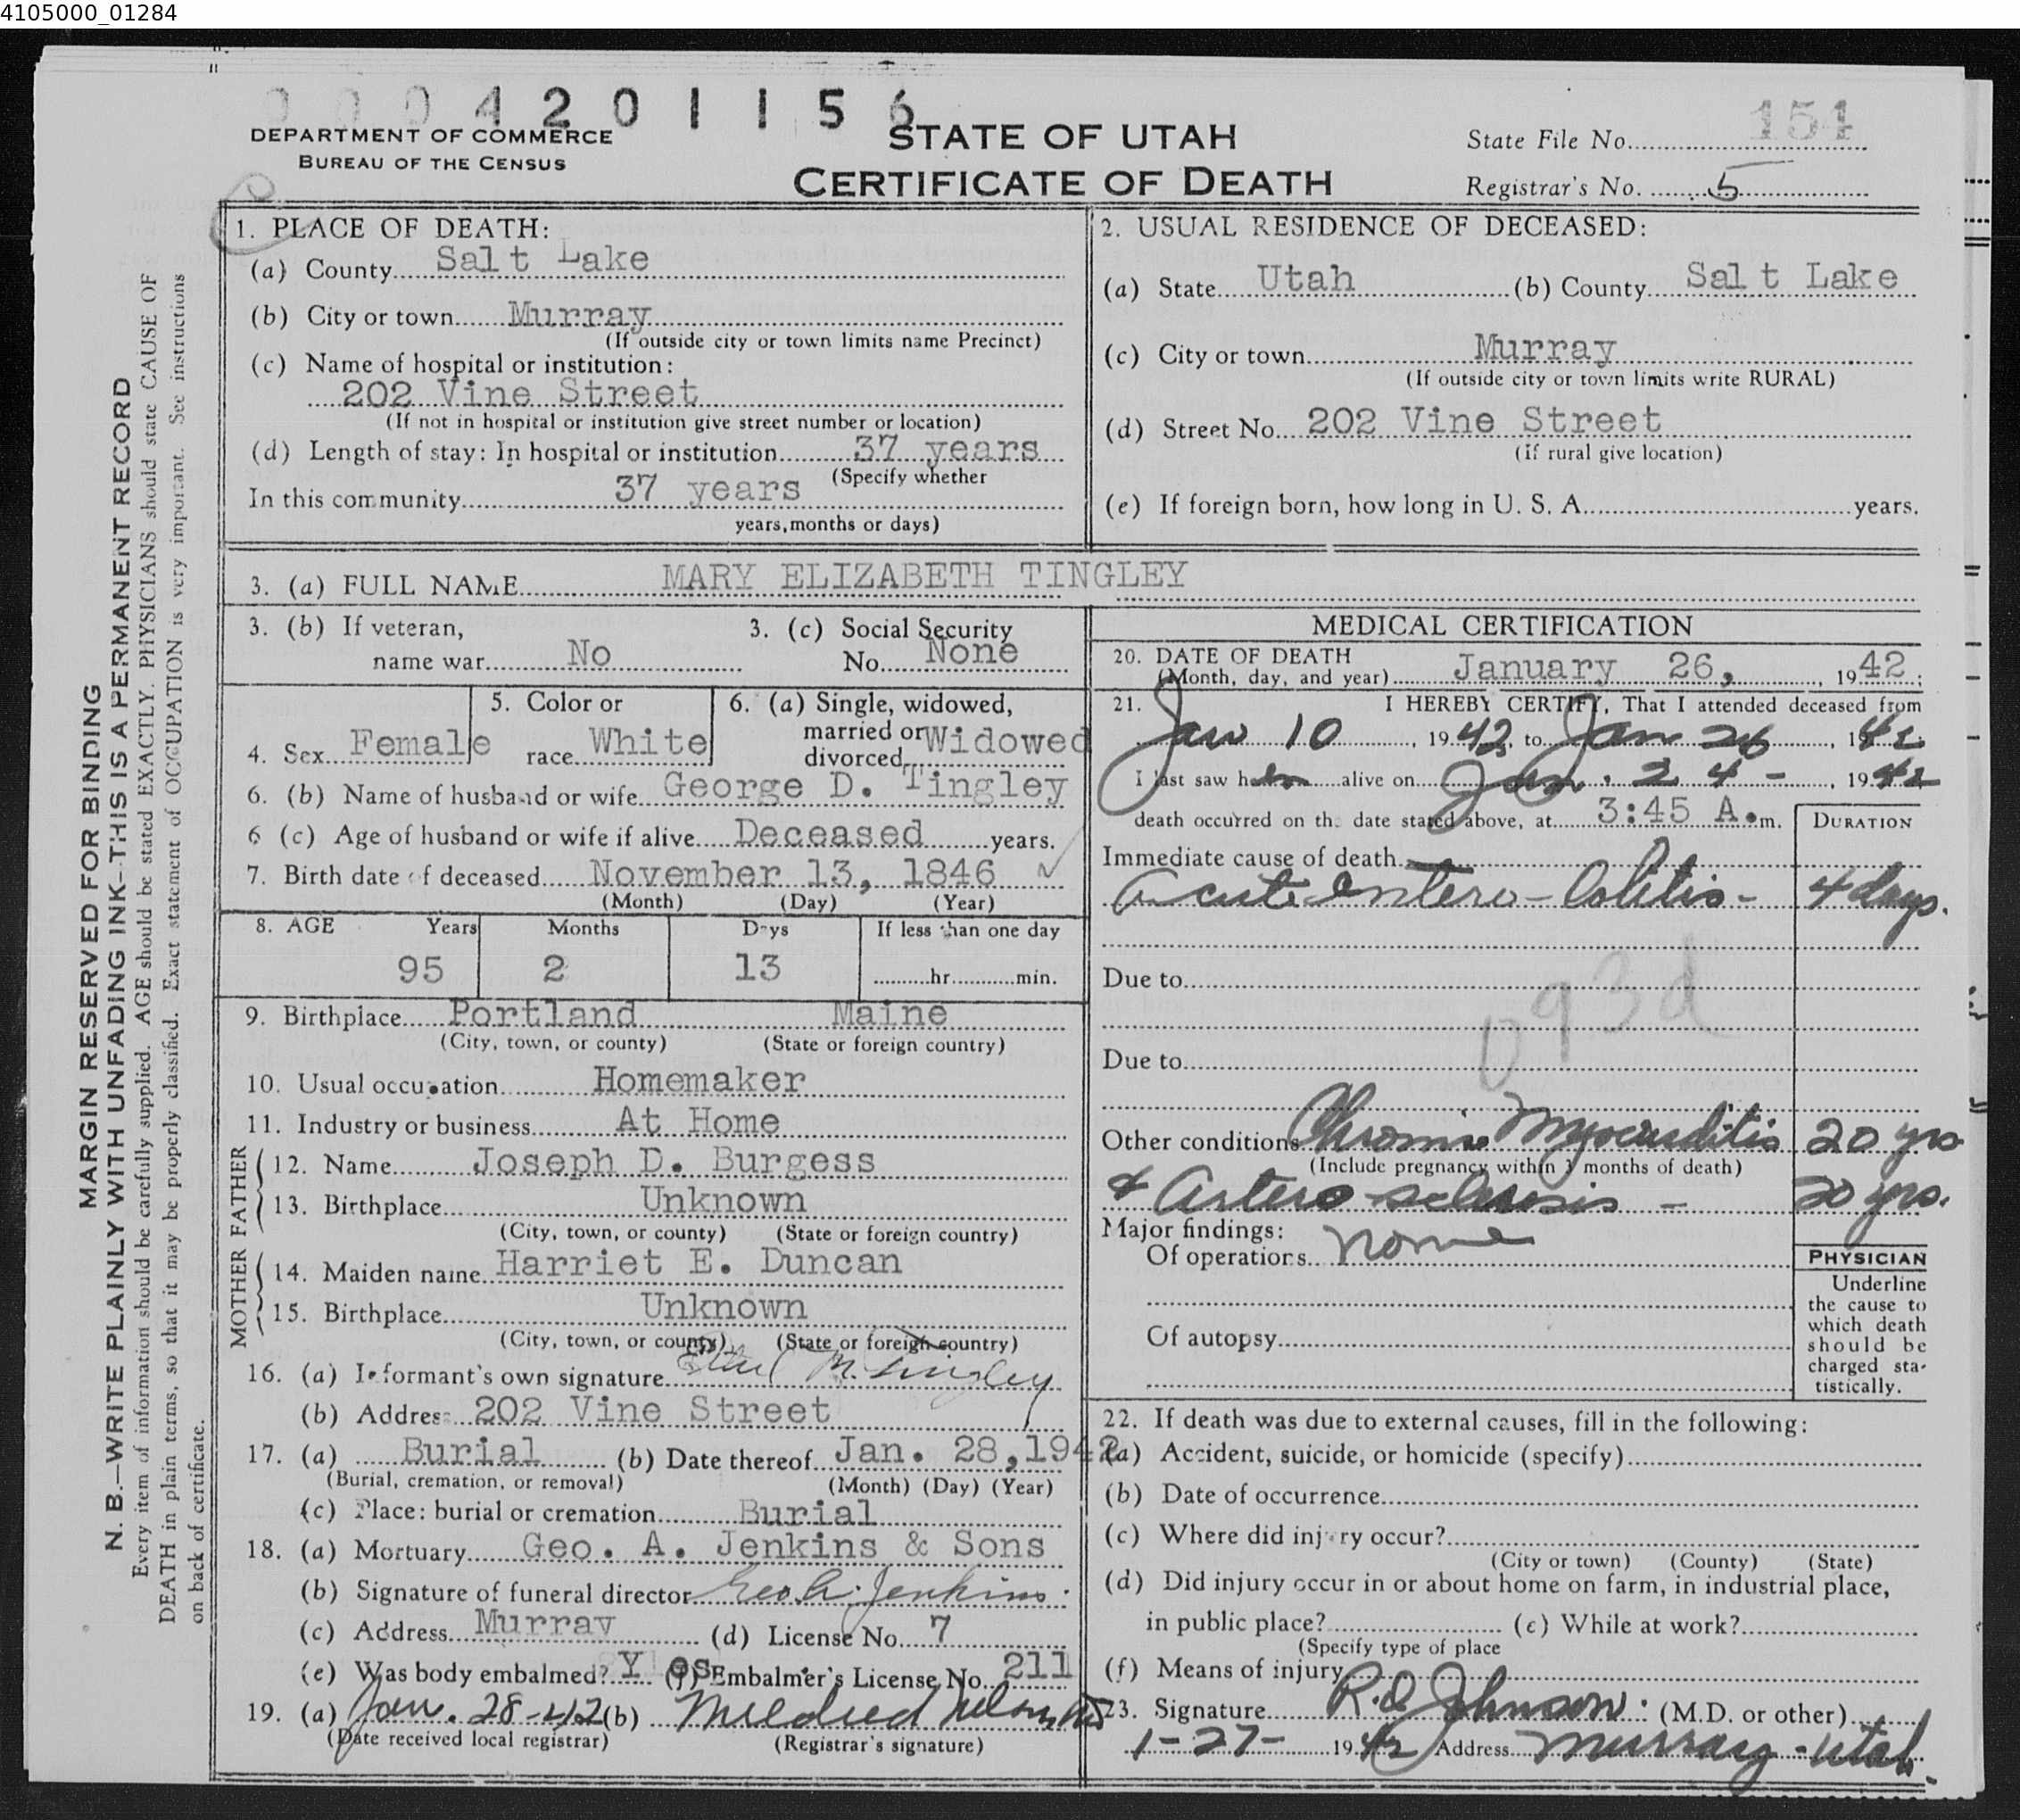 4105000_01284
0004201156
DEPARTMENT OF COMMERCE
BUREAU OF THE CENSUS
STATE OF UTAH
CERTIFICATE OF DEATH
State File No. 154
Registrar's No. 5
MARGIN RESERVED FOR BINDING
N. B.—WRITE PLAINLY WITH UNFADING INK—THIS IS A PERMANENT RECORD
Every item of information should be carefully supplied. AGE should be stated EXACTLY. PHYSICIANS should state CAUSE OF
DEATH in plain terms, so that it may be properly classified. Exact statement of OCCUPATION is very important. See instructions
on back of certificate.
1. PLACE OF DEATH:
(a) County Salt Lake
(b) City or town Murray
(If outside city or town limits name Precinct)
(c) Name of hospital or institution:
202 Vine Street
(If not in hospital or institution give street number or location)
(d) Length of stay: In hospital or institution 37 years
(Specify whether
In this community 37 years
years, months or days)
2. USUAL RESIDENCE OF DECEASED:
(a) State Utah (b) County Salt Lake
(c) City or town Murray
(If outside city or town limits write RURAL)
(d) Street No. 202 Vine Street
(if rural give location)
(e) If foreign born, how long in U. S. A. years.
3. (a) FULL NAME MARY ELIZABETH TINGLEY
3. (b) If veteran,
name war No
3. (c) Social Security
No. None
4. Sex Female
5. Color or
race White
6. (a) Single, widowed,
married or
divorced Widowed
6. (b) Name of husband or wife George D. Tingley
6 (c) Age of husband or wife if alive Deceased years.
7. Birth date of deceased November 13, 1846 ✓
(Month) (Day) (Year)
8. AGE Years Months Days If less than one day
95 2 13 hr. min.
9. Birthplace Portland Maine
(City, town, or county) (State or foreign country)
10. Usual occupation Homemaker
11. Industry or business At Home
FATHER
12. Name Joseph D. Burgess
13. Birthplace Unknown
(City, town, or county) (State or foreign country)
MOTHER
14. Maiden name Harriet E. Duncan
15. Birthplace Unknown
(City, town, or county) (State or foreign country)
16. (a) Informant's own signature M. Tingley
(b) Address 202 Vine Street
17. (a) Burial (b) Date thereof Jan. 28, 1942
(Burial, cremation, or removal) (Month) (Day) (Year)
(c) Place: burial or cremation Burial
18. (a) Mortuary Geo. A. Jenkins & Sons
(b) Signature of funeral director Geo A. Jenkins
(c) Address Murray (d) License No. 7
(e) Was body embalmed? Yes (f) Embalmer's License No. 211
19. (a) Jan. 28-42 (b) Mildred
(Date received local registrar) (Registrar's signature)
MEDICAL CERTIFICATION
20. DATE OF DEATH
(Month, day, and year) January 26, 1942
21. I HEREBY CERTIFY, That I attended deceased from
Jan 10, 1942, to Jan 26, 1942
I last saw her alive on Jan. 24-, 1942
death occurred on the date stated above, at 3:45 A.m.
DURATION
Immediate cause of death
Acute Entero-Colitis- 4 days.
Due to
093d
Due to
Other conditions Chronic Myocarditis 20 yrs
(Include pregnancy within 3 months of death)
& Artero-sclerosis - 20 yrs.
Major findings:
Of operations None
Of autopsy
PHYSICIAN
Underline
the cause to
which death
should be
charged sta-
tistically.
22. If death was due to external causes, fill in the following:
(a) Accident, suicide, or homicide (specify)
(b) Date of occurrence
(c) Where did injury occur?
(City or town) (County) (State)
(d) Did injury occur in or about home on farm, in industrial place,
in public place? (e) While at work?
(Specify type of place
(f) Means of injury
23. Signature R.O. Johnson. (M.D. or other)
1-27- 1942 Address Murray-Utah.